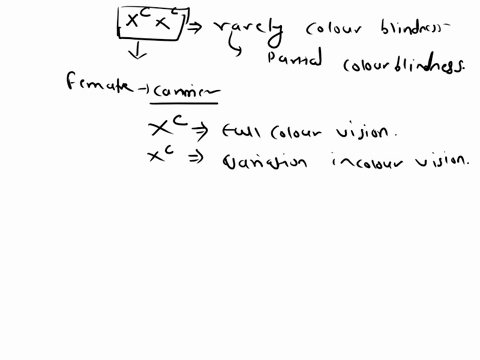 X^C X^c ⇒ rarely colour blindness
↳ Partial colourblindness.
Female → carrier
X^C ⇒ Full colour vision.
X^c ⇒ Variation in colour vision.